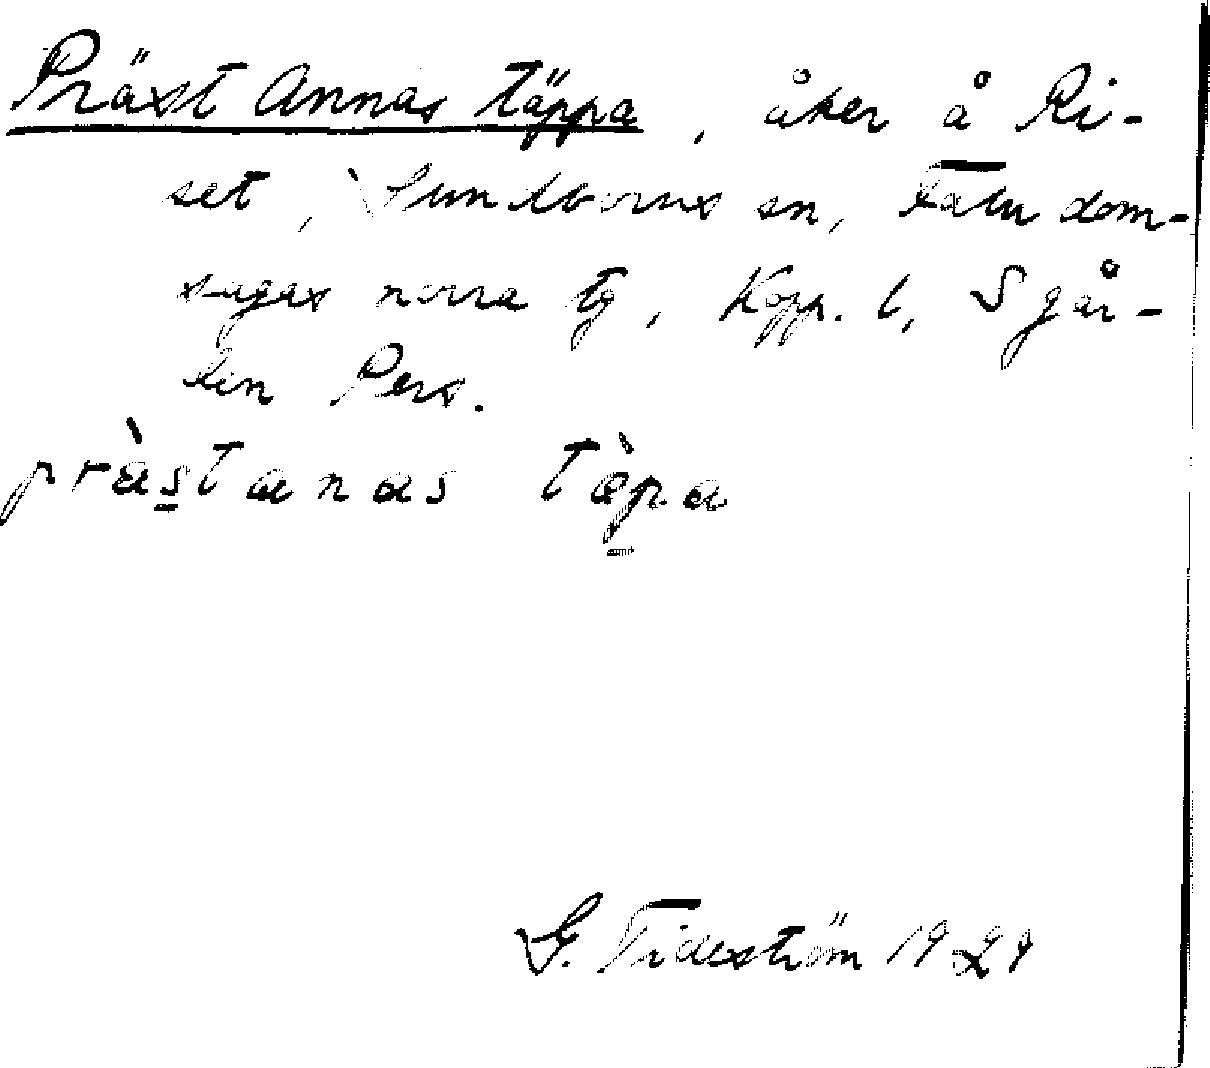 Präst Annas täppa, åker å Ri-
set, Sundborns sn, Falu dom-
sagas norra tg, Kopp. l, Sgår-
den Pers.
pràstanas tæ̀pa
G. Tideström 1929